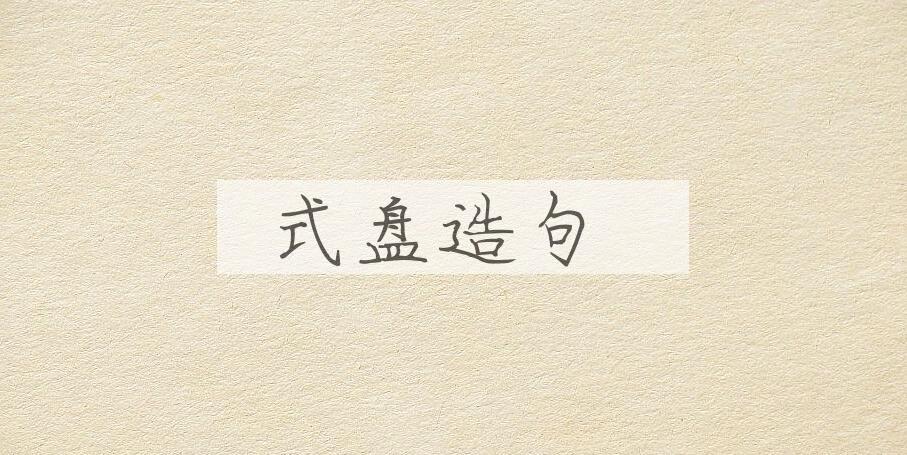 式盘造句